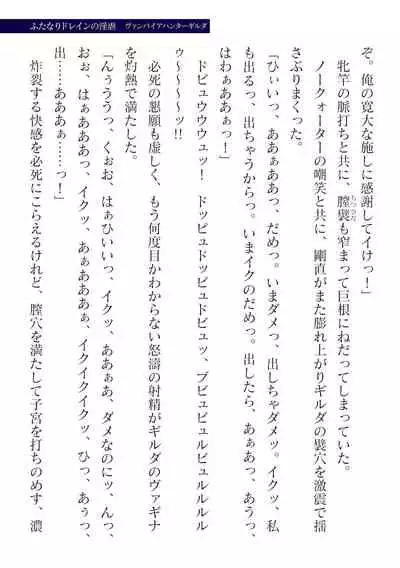 ふたなりドレインの淫虐　ヴァンパイアハンターギルダ
ぞ。俺の寛大な施しに感謝してイけっ！」
　牝竿の脈打ちと共に、膣襞も窄まって巨根にねだってしまっていた。
　ノークォーターの嘲笑と共に、剛直がまた膨れ上がりギルダの襞穴を激震で揺
さぶりまくった。
「ひぃいっ、ああぁああっ、だめっ。いまダメっ、出しちゃダメッ。イクッ、私
も出るっ、出ちゃうからっ。いまイクのだめっ。出したら、あぁあっ、あぁっ、
はわぁああぁっ！」
　ドビュウウウュッ！　ドッピュドッピュドビュッ、ブビュビュルビュルルルル
ゥ〜〜〜〜ッ!!
　必死の懇願も虚しく、もう何度目かわからない怒濤の射精がギルダのヴァギナ
を灼熱で満たした。
「んぅううっ、くぉお、はぁひいいっ、イクッ、ああぁあ、ダメなのにッ、んっ、
おぉ、はぁあああっ、イクッ、あぁあああぁ、イクイクイクッ、ひっ、あぅっ、
出……あああぁ……っ！」
　炸裂する快感を必死にこらえるけれど、膣穴を満たして子宮を打ちのめす、濃